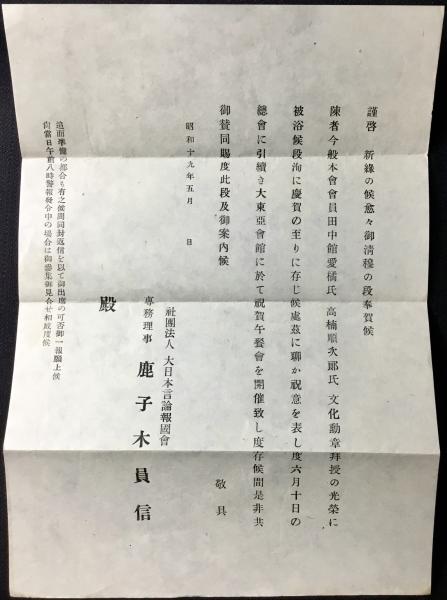 謹啓 新緑の候愈々御淸穆の段奉賀候
陳者今般本會會員田中館愛橘氏、高楠順次郞氏、文化勳章拜授の光榮に
被浴候段洵に慶賀の至りに存じ候處茲に聊か祝意を表し度六月十日の
總會に引續き大東亞會館に於て祝賀午餐會を開催致し度存候間是非共
御賛同賜度此段及御案內候
敬具
昭和十九年五月 日
社團法人 大日本言論報國會
專務理事 鹿子木員信
殿
追而準備の都合も有之候間同封返信を以て御出席の可否御一報願上候
尙當日午前八時警報發令中の場合は御參集御見合せ相成度候